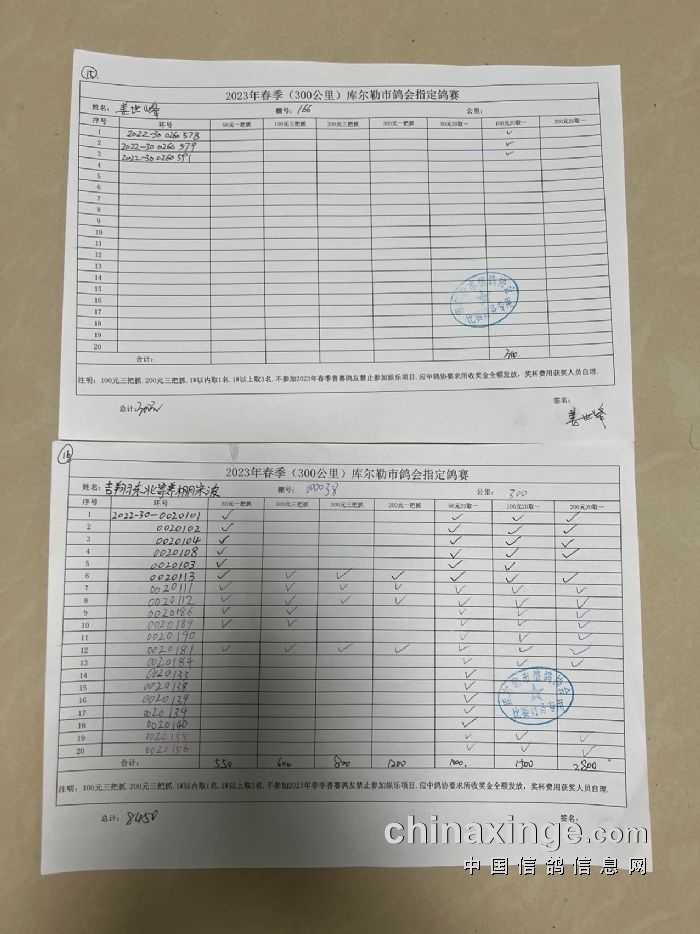 15
2023年春季（300公里）库尔勒市鸽会指定鸽赛
姓名: 姜世峰 棚号: 166 公里:
序号 环号 50元一把抓 100元三把抓 200元三把抓 300元一把抓 50元20取一 100元20取一 200元20取一
1 2022-30 0260578 ✓
2 2022-30 0260579 ✓
3 2022-30 0260591 ✓
4
5
6
7
8
9
10
11
12
13
14
15
16
17
18
19
20
合计: 300
注明: 100元三把抓.200元三把抓.1W以内取1名.1W以上取3名.不参加2023年春季普赛鸽友禁止参加娱乐项目.应中鸽协要求所收奖金全额发放，奖杯费用获奖人员自理.
总计: 300 签名:
姜世峰
16
2023年春季（300公里）库尔勒市鸽会指定鸽赛
姓名: 棚号: 002038 公里: 300
序号 环号 50元一把抓 100元三把抓 200元三把抓 300元一把抓 50元20取一 100元20取一 200元20取一
1 2022-30-0020101 ✓ ✓ ✓ ✓
2 0020102 ✓ ✓ ✓ ✓
3 0020104 ✓ ✓ ✓ ✓
4 0020108 ✓ ✓ ✓ ✓
5 0020103 ✓ ✓ ✓
6 0020113 ✓ ✓ ✓ ✓ ✓ ✓ ✓
7 0020111 ✓ ✓ ✓ ✓ ✓ ✓ ✓
8 0020112 ✓ ✓ ✓ ✓ ✓ ✓ ✓
9 0020186 ✓ ✓ ✓ ✓ ✓
10 0020189 ✓ ✓ ✓ ✓ ✓
11 0020190 ✓ ✓ ✓
12 0020181 ✓ ✓ ✓ ✓ ✓ ✓ ✓
13 0020184 ✓ ✓ ✓
14 0020133 ✓
15 0020138 ✓
16 0020139 ✓
17 0020134 ✓
18 0020140 ✓
19 0020155 ✓ ✓ ✓
20 0020156 ✓ ✓ ✓
合计: 550 600 800 1200 1000. 1500 2800
注明: 100元三把抓.200元三把抓.1W以内取1名.1W以上取3名.不参加2023年春季普赛鸽友禁止参加娱乐项目.应中鸽协要求所收奖金全额发放，奖杯费用获奖人员自理.
总计: 8450 签名:
chinaxinge.com
中国信鸽信息网